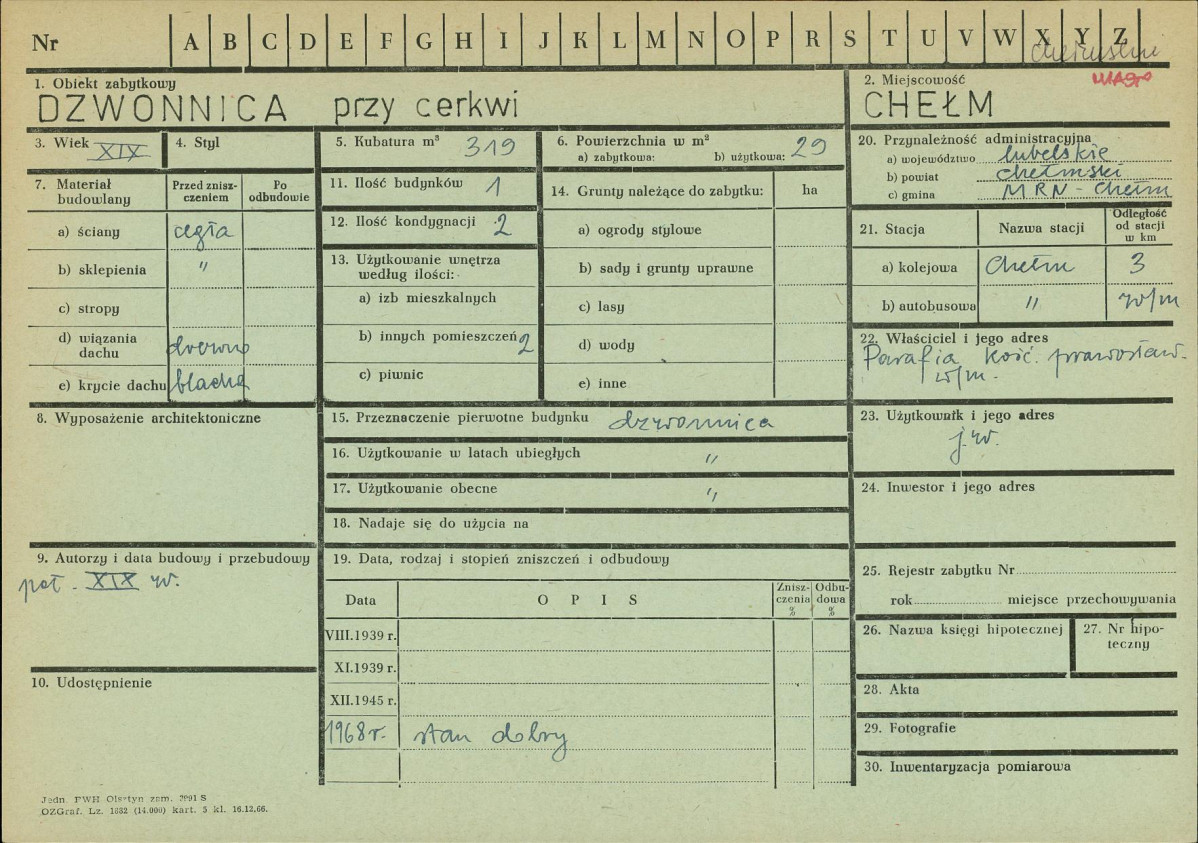 Nr A B C D E F G H I J K L M N O P R S T U V W X Y Z
1. Obiekt zabytkowy
DZWONNICA przy cerkwi
2. Miejscowość
CHEŁM
3. Wiek XIX
4. Styl
5. Kubatura m³ 319
6. Powierzchnia w m²
a) zabytkowa: b) użytkowa: 29
7. Materiał budowlany
Przed znisz-
czeniem
Po
odbudowie
a) ściany cegła
b) sklepienia "
c) stropy
d) wiązania
dachu drewno
e) krycie dachu blacha
8. Wyposażenie architektoniczne
9. Autorzy i data budowy i przebudowy
poł. XIX w.
10. Udostępnienie
11. Ilość budynków 1
12. Ilość kondygnacji 2
13. Użytkowanie wnętrza
według ilości:
a) izb mieszkalnych
b) innych pomieszczeń 2
c) piwnic
14. Grunty należące do zabytku: ha
a) ogrody stylowe
b) sady i grunty uprawne
c) lasy
d) wody
e) inne
15. Przeznaczenie pierwotne budynku dzwonnica
16. Użytkowanie w latach ubiegłych "
17. Użytkowanie obecne "
18. Nadaje się do użycia na
19. Data, rodzaj i stopień zniszczeń i odbudowy
Data OPIS
Znisz-
czenia
%
Odbu-
dowa
%
VIII.1939 r.
XI.1939 r.
XII.1945 r.
1968 r. stan dobry
20. Przynależność administracyjna
a) województwo lubelskie
b) powiat chełmski
c) gmina MRN - Chełm
21. Stacja Nazwa stacji
Odległość
od stacji
w km
a) kolejowa Chełm 3
b) autobusowa " w/m
22. Właściciel i jego adres
Parafia kość. prawosław.
w/m.
23. Użytkownik i jego adres
j.w.
24. Inwestor i jego adres
25. Rejestr zabytku Nr
rok miejsce przechowywania
26. Nazwa księgi hipotecznej
27. Nr hipo-
teczny
28. Akta
29. Fotografie
30. Inwentaryzacja pomiarowa
Jedn. PWH Olsztyn zam. 3991 S
OZGraf. Lz. 1882 (14.000) kart. 5 kl. 16.12.66.